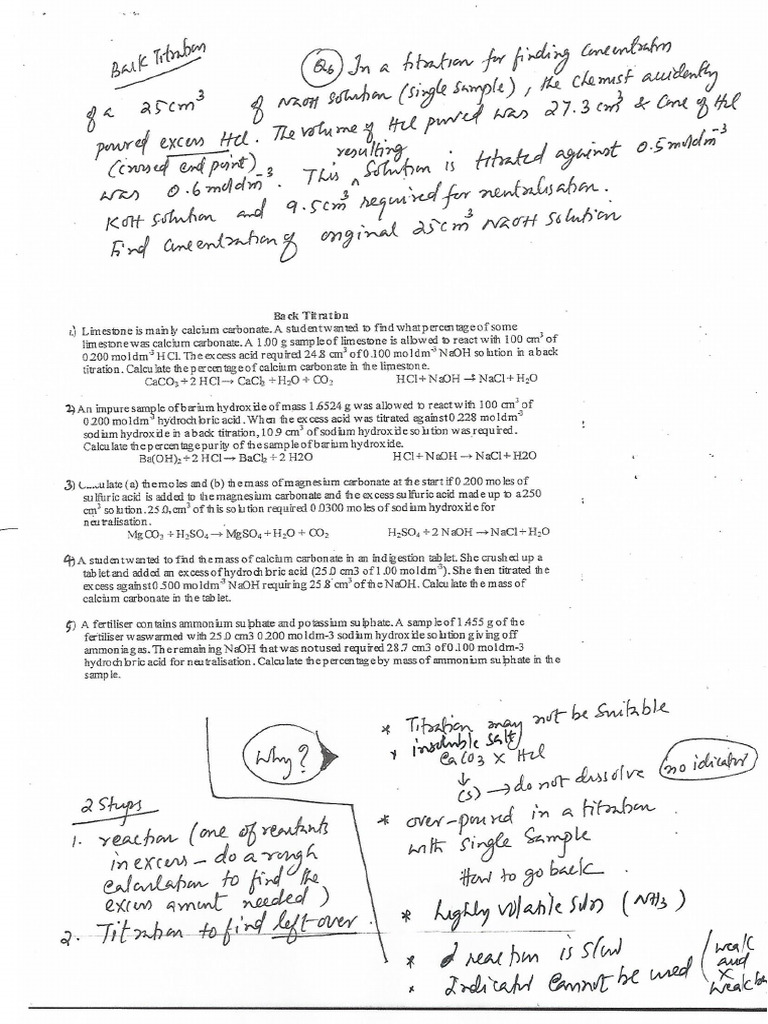 Back Titration
Q6 In a titration for finding concentration
of a 25cm³ of NaOH solution (single sample), the chemist accidently
poured excess Hcl. The volume of Hcl poured was 27.3 cm³ & conc of Hcl
(crossed end point)
was 0.6 moldm⁻³. This resulting solution is titrated against 0.5 moldm⁻³
KOH solution and 9.5cm³ required for neutralisation.
Find concentration of original 25cm³ NaOH solution
Back Titration
1) Limestone is mainly calcium carbonate. A student wanted to find what percentage of some
limestone was calcium carbonate. A 1.00 g sample of limestone is allowed to react with 100 cm³ of
0.200 mol dm⁻³ HCl. The excess acid required 24.8 cm³ of 0.100 mol dm⁻³ NaOH solution in a back
titration. Calculate the percentage of calcium carbonate in the limestone.
CaCO₃ + 2 HCl → CaCl₂ + H₂O + CO₂ HCl + NaOH → NaCl + H₂O
2) An impure sample of barium hydroxide of mass 1.6524 g was allowed to react with 100 cm³ of
0.200 mol dm⁻³ hydrochloric acid. When the excess acid was titrated against 0.228 mol dm⁻³
sodium hydroxide in a back titration, 10.9 cm³ of sodium hydroxide solution was required.
Calculate the percentage purity of the sample of barium hydroxide.
Ba(OH)₂ + 2 HCl → BaCl₂ + 2 H2O HCl + NaOH → NaCl + H2O
3) C...ulate (a) the moles and (b) the mass of magnesium carbonate at the start if 0.200 moles of
sulfuric acid is added to the magnesium carbonate and the excess sulfuric acid made up to a 250
cm³ solution. 25.0 cm³ of this solution required 0.0300 moles of sodium hydroxide for
neutralisation.
MgCO₃ + H₂SO₄ → MgSO₄ + H₂O + CO₂ H₂SO₄ + 2 NaOH → NaCl + H₂O
4) A student wanted to find the mass of calcium carbonate in an indigestion tablet. She crushed up a
tablet and added an excess of hydrochloric acid (25.0 cm3 of 1.00 mol dm⁻³). She then titrated the
excess against 0.500 mol dm⁻³ NaOH requiring 25.8 cm³ of the NaOH. Calculate the mass of
calcium carbonate in the tablet.
5) A fertiliser contains ammonium sulphate and potassium sulphate. A sample of 1.455 g of the
fertiliser was warmed with 25.0 cm3 0.200 mol dm-3 sodium hydroxide solution giving off
ammonia gas. The remaining NaOH that was not used required 28.7 cm3 of 0.100 mol dm-3
hydrochloric acid for neutralisation. Calculate the percentage by mass of ammonium sulphate in the
sample.
Why?
2 Steps
1. reaction (one of reactants
in excess - do a rough
calculation to find the
excess amount needed)
2. Titration to find left over.
* Titration may not be suitable
* insoluble salt
CaCO3 X Hcl
↓
(s) → do not dissolve no idicator
* over-poured in a titration
with single sample
How to go back.
* highly volatile subs (NH₃)
* reaction is slow
* Indicator cannot be used (weak
and
X
weak